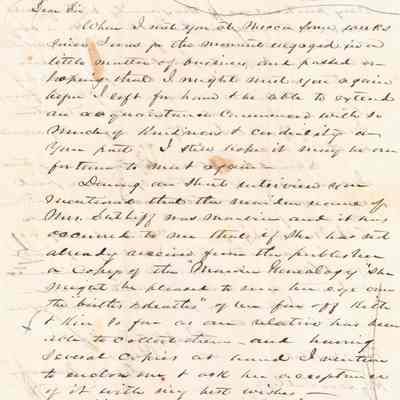 Dear Sir
When I met you at Mecca some weeks
since I was for the moment engaged in a
little matter of business, and passed on
hoping that I might meet you again
before I left for home & be able to extend
an acquaintance commenced with so
much of Kindness & cordiality on
your part. I still hope it may be our
fortune to meet again —
During our short interview you
mentioned that the maiden name of
Mrs. Sutliff was Marvin and it has
occurred to me that if she has not
already received from the publisher
a copy of the "Marvin Genealogy" She
might be pleased to run her eye over
the "births & deaths" of her far off Kith
& Kin so far as our relative has been
able to collect them — and having
several copies at hand I venture
to enclose one & ask her acceptance
of it with my best wishes —